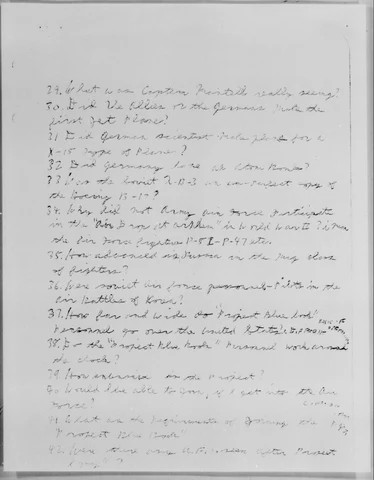 29. What was Captain Mantell really seeing?
30. Did the Allies or the Germans make the
first Jet Plane?
31. Did German scientist make plans for a
X-15 type of Plane?
32. Did Germany have an Atom Bomb?
33. Was the Soviet copy of
the Boeing B-
34. Why did not Army air Force Participate
in the "Air in World War II? i mean
the Air Force fighters P-51 P-47 etc.
35. How advanced is Russia in the Mig class
of fighters?
36. Were soviet air force personnel Pilots in the
air Battles of Korea?
37. How far and wide do "Project Blue Book"
Personnel go over the United States
38. Do the "Project Blue Book" Personnel work around
the clock?
39. How extensive is the Project?
40. Would I be able to join, if I get into the Air
Force?
41. What are the Requirements of Joining the
"Project Blue Book"
42. Were there any after Project